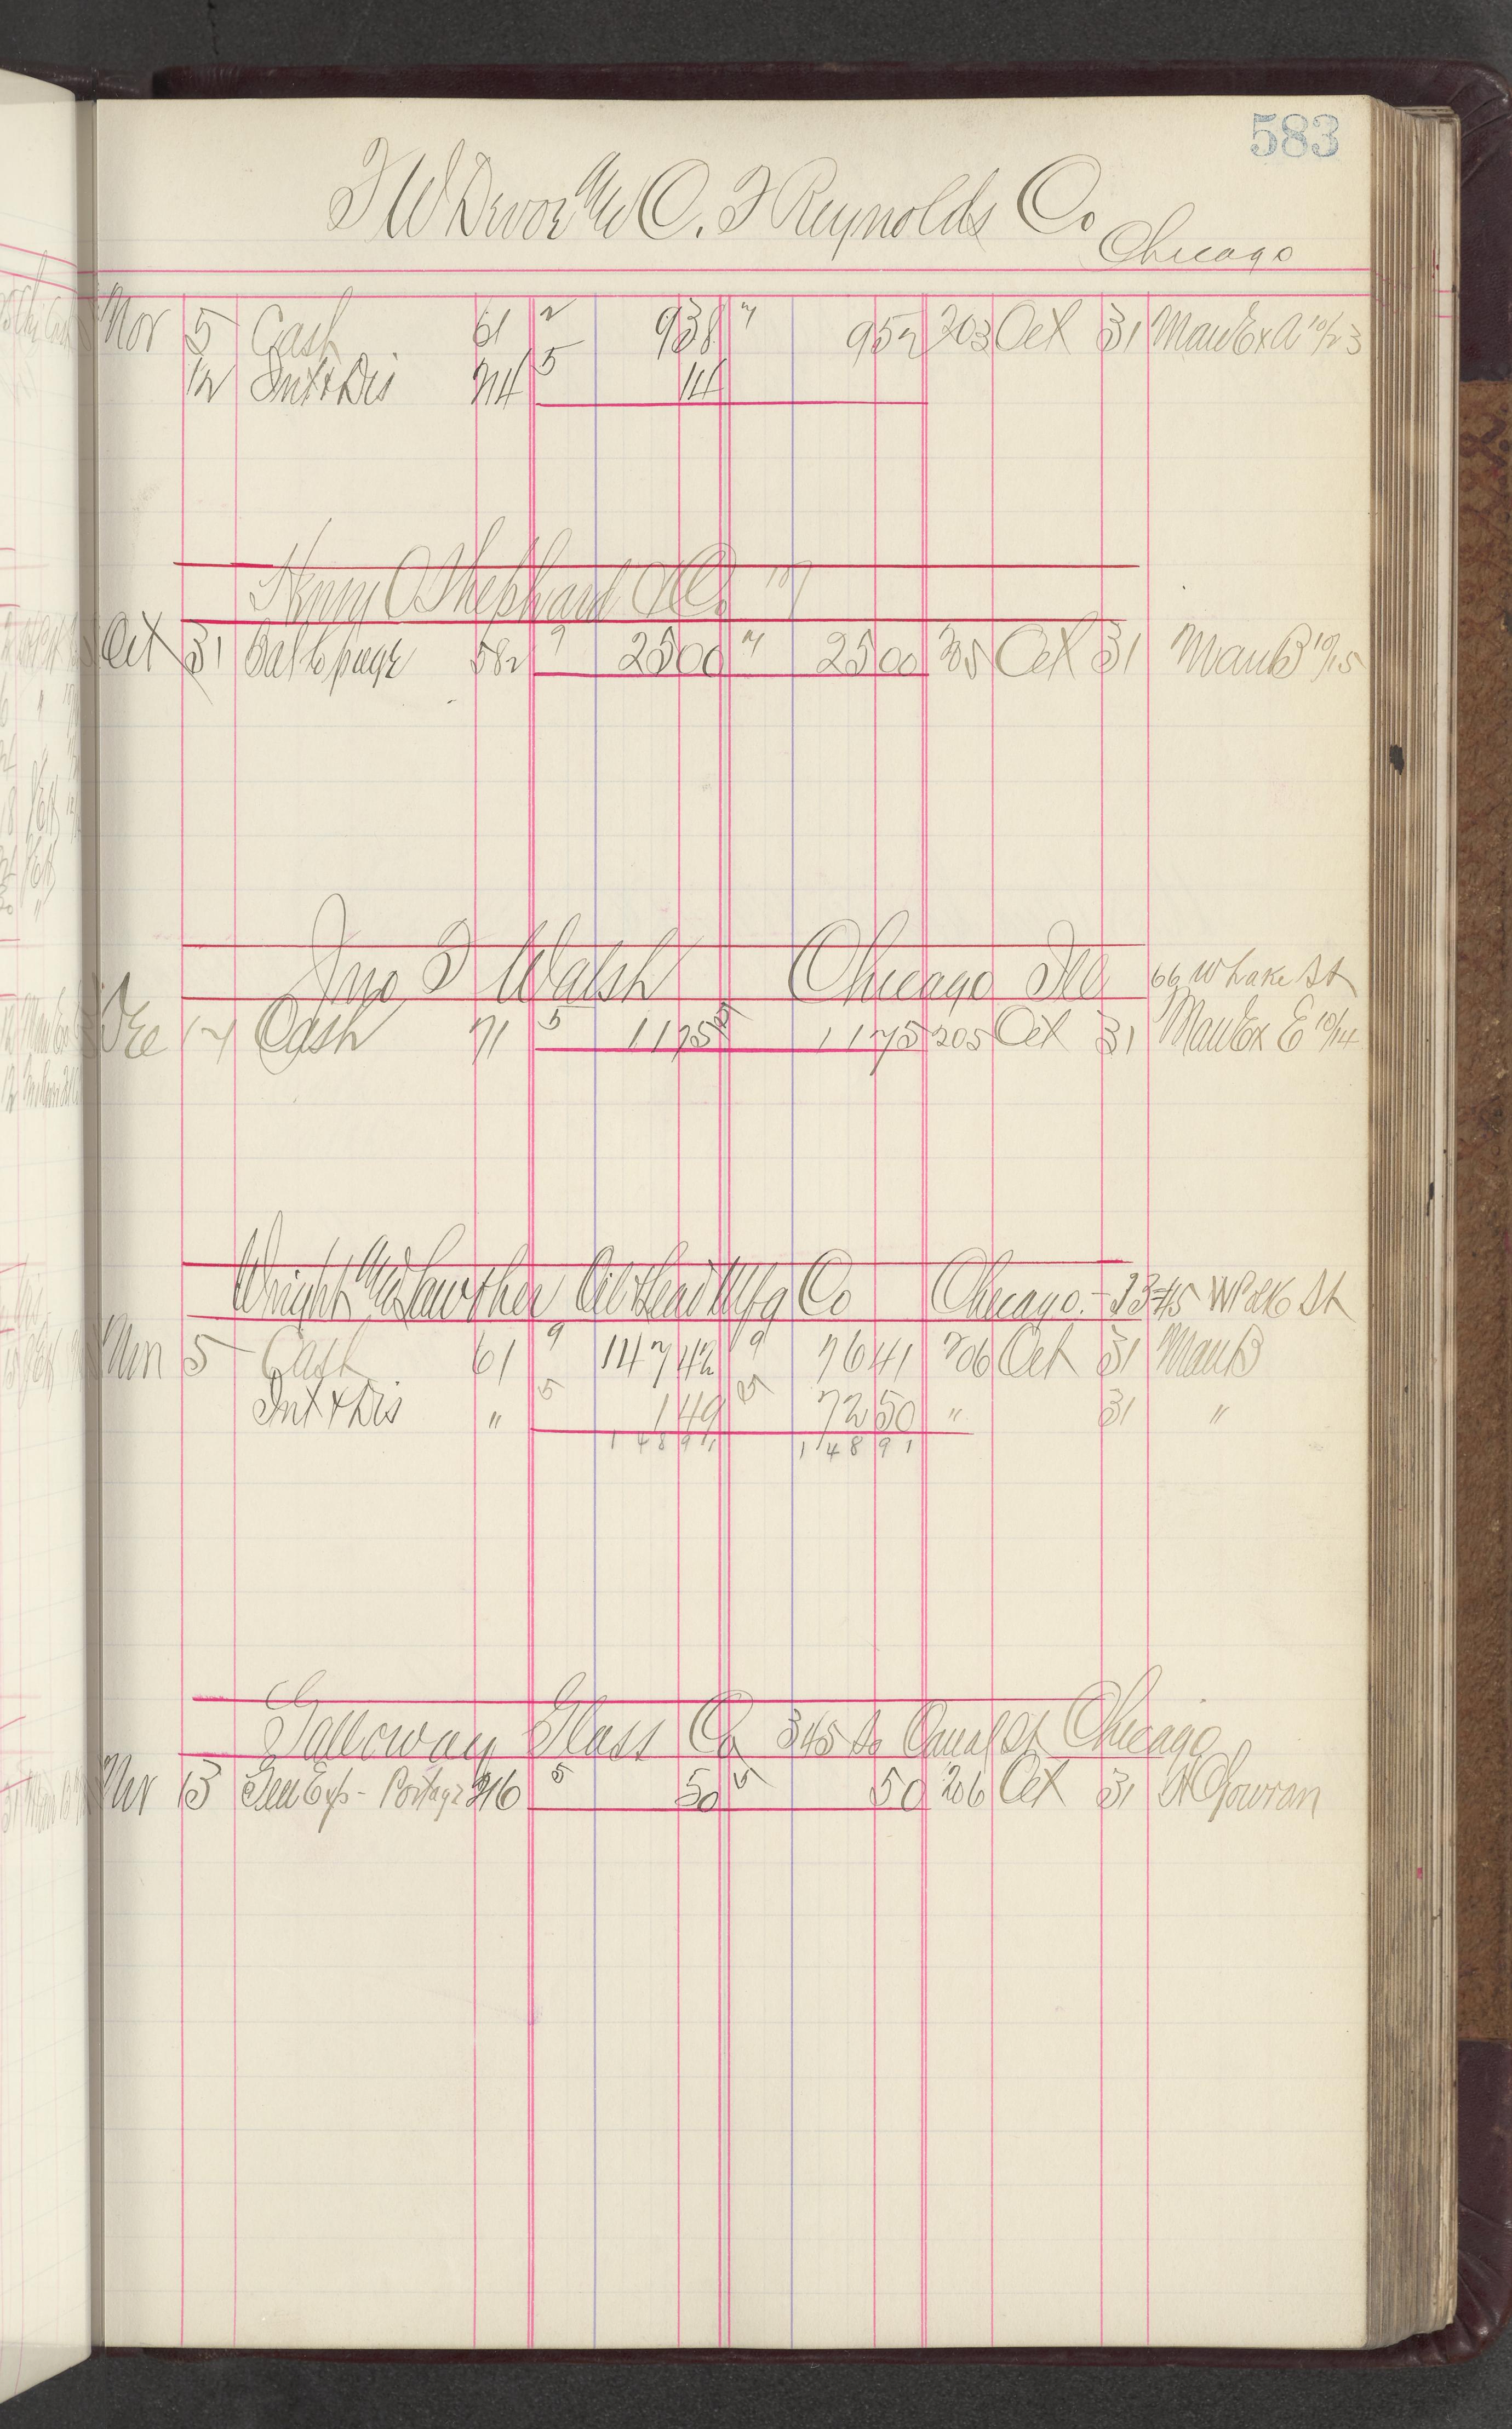 583
F W Devoe & C. T Reynolds Co Chicago
Nov 5 Cash 61 2 938 7 952 203 Oct 31 Man Ex A 10/23
12 Int & Dis 214 5 14
Henry O Shephard & Co
Oct 31 Bal to page 582 9 2500 7 2500 205 Oct 31 Man B 10/15
Jno F Walsh Chicago Ill 66 W Lake St
Dec Cash 71 5 1175 5 1175 205 Oct 31 Man Ex E 10/14
Wright & Lawther Oil & Lead Mfg Co Chicago - W Polk St
Nov 5 Cash 61 9 14742 9 7641 206 Oct 31 Man B
Int & Dis " 5 149 5 7250 " 31 "
14891 14891
Galloway Glass Co 345 So Canal St Chicago
Nov 13 Gen Exp - Postage 216 5 50 5 50 206 Oct 31